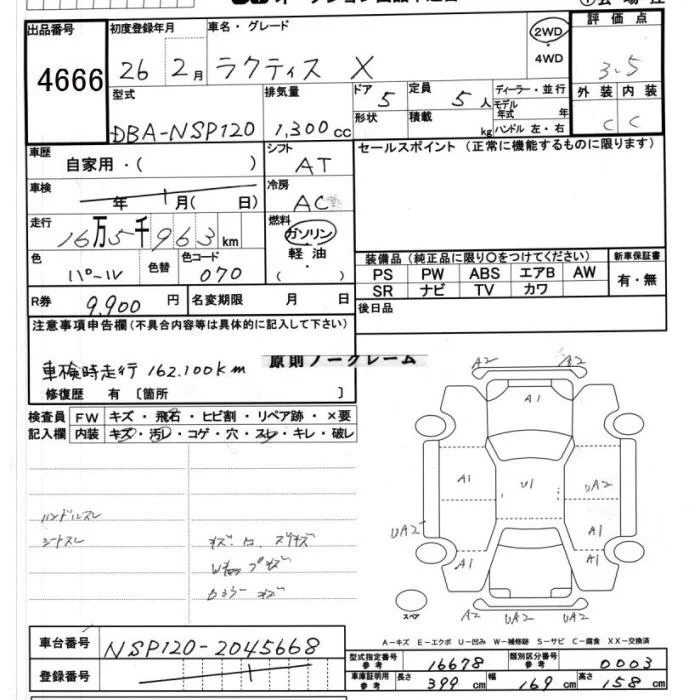 出品番号 初度登録年月 車名・グレード ①会場控
4666 26 2月 ラクティス X 2WD・4WD 評価点 3.5
型式 DBA-NSP120 排気量 1,300cc
ドア 5 定員 5人 ディーラー・並行 外装 内装
形状 積載 kg モデル年式 年 ハンドル 左・右 C C
車歴 自家用・( ) シフト AT セールスポイント (正常に機能するものに限ります)
車検 年 月( 日) 冷房 AC
走行 16万5千963km 燃料 ガソリン・軽油・( )
色 パール 色替 色コード 070
装備品 (純正品に限り〇をつけてください) 新車保証書
PS PW ABS エアB AW 有・無
SR ナビ TV カワ
R券 9,900円 名変期限 月 日 後日品
注意事項申告欄(不具合内容等は具体的に記入して下さい)
車検時走行 162.100km
原則ノークレーム
修復歴 有 〔箇所 〕
検査員 FW キズ・飛石・ヒビ割・リペア跡・×要
記入欄 内装 キズ・汚レ・コゲ・穴・スレ・キレ・破レ
A2 A2
A1
A1 U1 UA2
UA2 A1
A1 A1
A2 UA2 UA2
スペア
ハンドルスレ
シートスレ
A-キズ E-エクボ U-凹み W-補修跡 S-サビ C-腐食 XX-交換済
車台番号 NSP120-2045668
登録番号
型式指定番号 参考 16678 類別区分番号 参考 0003
車庫証明用 参考 長さ 399cm 幅 169cm 高さ 158cm